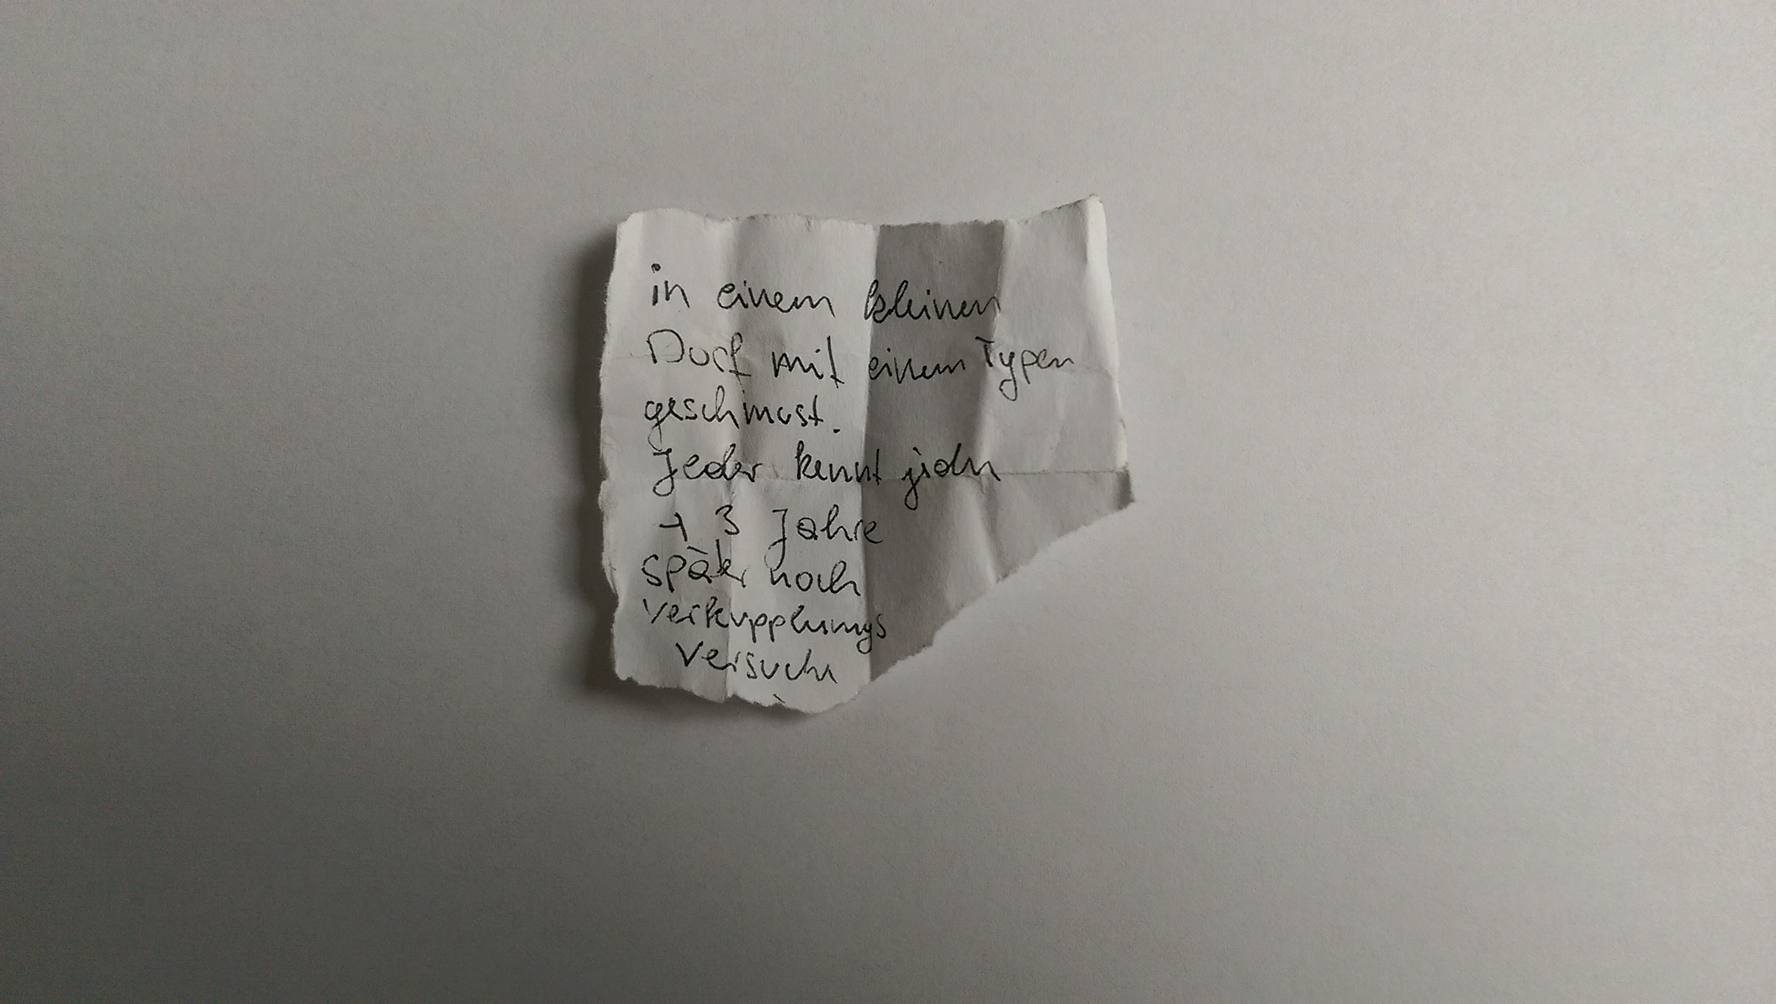 in einem kleinen
Dorf mit einem Typen
geschmust.
Jeder kennt jeden
→ 3 Jahre
später noch
Verkupplungs
versuche